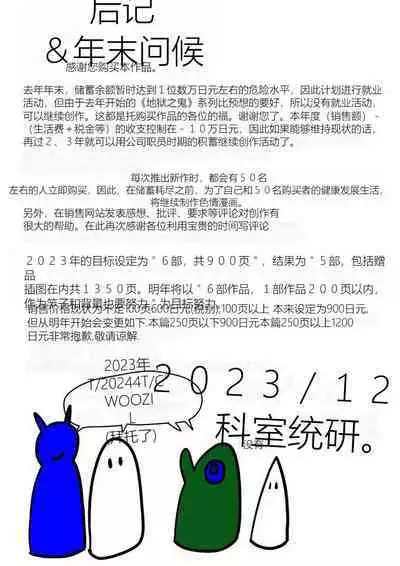 后记
＆年末问候
感谢您购买本作品。
去年年末，储蓄余额暂时达到１位数万日元左右的危险水平，因此计划进行就业
活动，但由于去年开始的《地狱之鬼》系列比预想的要好，所以没有就业活动，
可以继续创作。这都是托购买作品的各位的福。谢谢您了。本年度（销售额）-
（生活费＋税金等）的收支控制在－１０万日元，因此如果能够维持现状的话，
再过２、３年就可以用公司职员时期的积蓄继续创作活动了。
每次推出新作时，都会有５０名
左右的人立即购买，因此，在储蓄耗尽之前，为了自己和５０名购买者的健康发展生活，
将继续制作色情漫画。
另外，在销售网站发表感想、批评、要求等评论对创作有
很大的帮助。在此再次感谢各位利用宝贵的时间写评论
２０２３年的目标设定为＂６部，共９００页＂，结果为＂５部，包括赠
品
插图在内共１３５０页。明年将以＂６部作品，１部作品２００页以内，
作为竿子和背景也要努力＂为目标努力
销售价格现状为不足100页600日元(税别),100页以上 本来设定为900日元,
但从明年开始会变更如下.本篇250页以下900日元本篇250页以上1200
日元非常抱歉,敬请谅解.
2023年
T/20244T/C
WOOZI
L
(拜托了)
２０２３/１２
科室统研。
没有